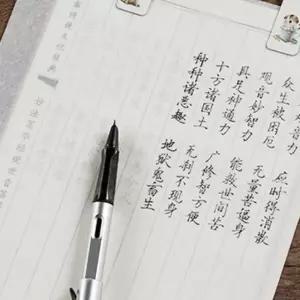 应时得消散
众生被困厄 无量苦逼身
观音妙智力 能救世间苦
具足神通力 广修智方便
十方诸国土 无刹不现身
种种诸恶趣 地狱鬼畜生
妙法莲华经观世音菩萨